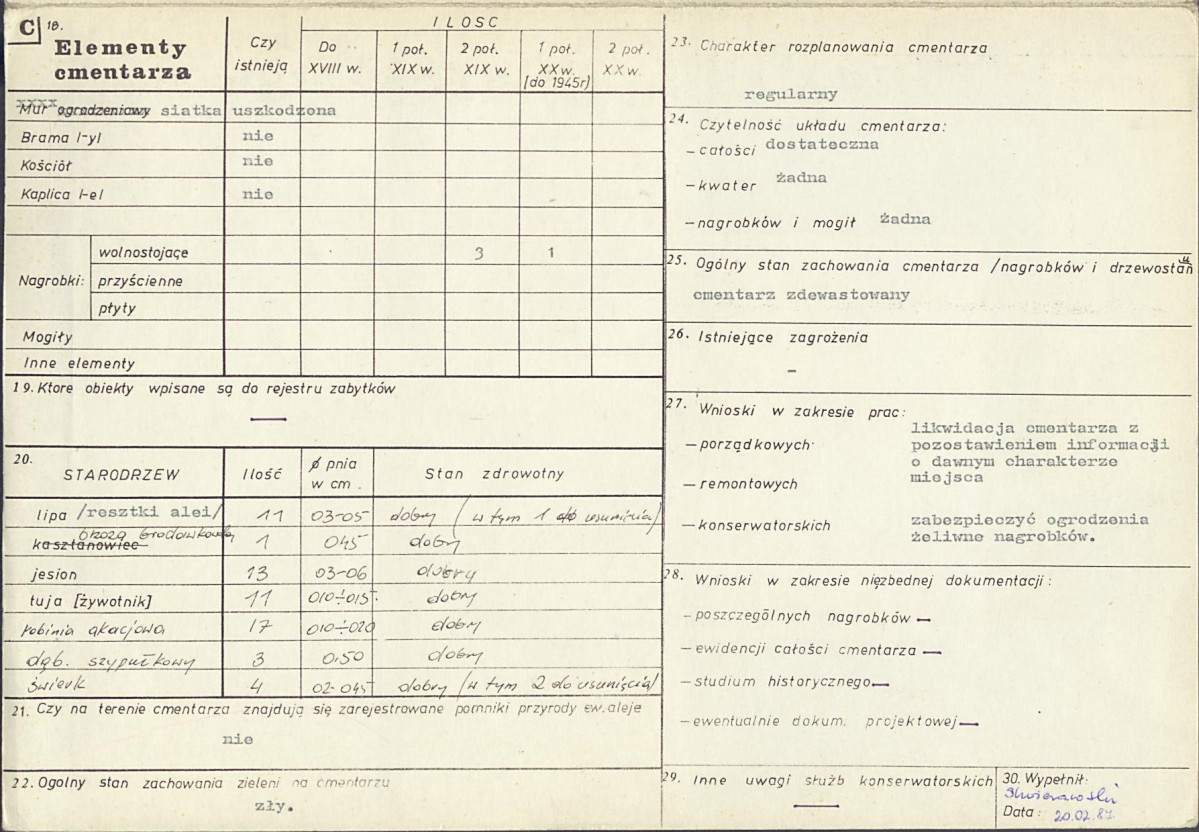 C 18.
Elementy cmentarza
Czy istnieją
ILOSC
Do XVIII w.
1 poł. XIX w.
2 poł. XIX w.
1 poł. XX w. [do 1945r]
2 poł. XX w.
Mur ogrodzeniowy siatka uszkodzona
Brama /-y/ nie
Kościół nie
Kaplica /-e/ nie
Nagrobki:
wolnostojące 3 1
przyścienne
płyty
Mogiły
Inne elementy
19. Ktore obiekty wpisane są do rejestru zabytków
—
20.
STARODRZEW Ilość ø pnia w cm. Stan zdrowotny
lipa /resztki alei/ 11 03-05 dobry (w tym 1 do usunięcia)
kasztanowiec brzoza brodawkowa 1 045 dobry
jesion 13 03-06 dobry
tuja [żywotnik] 11 010÷015 dobry
robinia akacjowa 17 010÷020 dobry
dąb. szypułkowy 3 0.50 dobry
świerk 4 02-045 dobry (w tym 2 do usunięcia)
21. Czy na terenie cmentarza znajdują się zarejestrowane pomniki przyrody ew. aleje
nie
22. Ogolny stan zachowania zieleni na cmentarzu
zły.
23. Charakter rozplanowania cmentarza
regularny
24. Czytelność układu cmentarza:
— całości dostateczna
— kwater żadna
— nagrobków i mogił żadna
25. Ogólny stan zachowania cmentarza /nagrobków i drzewostanu
cmentarz zdewastowany
26. Istniejące zagrożenia
–
27. Wnioski w zakresie prac:
likwidacja cmentarza z
— porządkowych pozostawieniem informacji
o dawnym charakterze
— remontowych miejsca
— konserwatorskich zabezpieczyć ogrodzenia
żeliwne nagrobków.
28. Wnioski w zakresie nięzbednej dokumentacji:
— poszczególnych nagrobków —
— ewidencji całości cmentarza —
— studium historycznego —
— ewentualnie dokum. projektowej —
29. Inne uwagi służb konserwatorskich
—
30. Wypełnił:
Data: 20.02.87